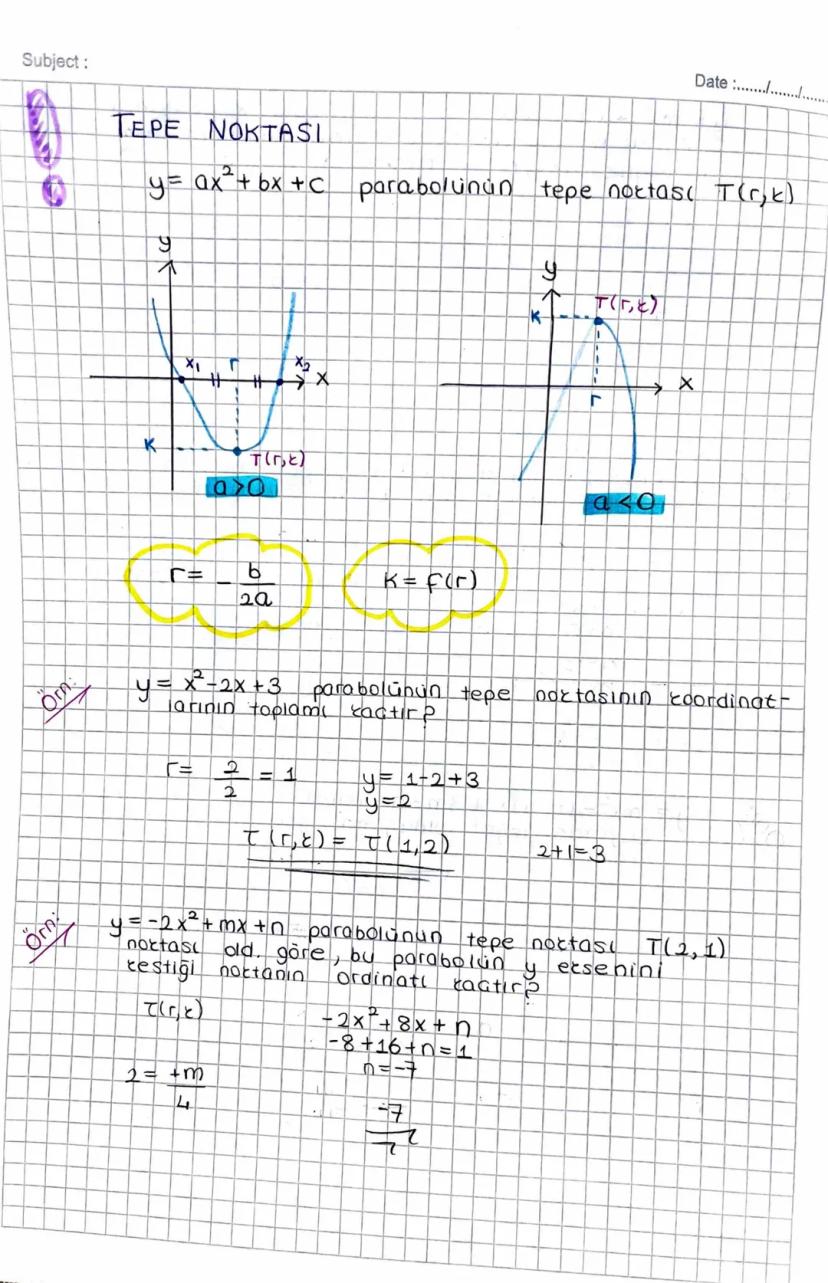 Subject :
Date :......./......./......
TEPE NOKTASI
y = ax² + bx + c parabolünün tepe noktası T(r,k)
y
x₁ r x₂ x
K
T(r,k)
a>0
y
T(r,k)
K
x
r
a<0
r = - b/2a
K = f(r)
Örn: y = x²-2x+3 parabolünün tepe noktasının koordinat-
larının toplamı kaçtır?
r = 2/2 = 1
y = 1-2+3
y=2
T(r,k) = T(1,2)
2+1=3
Örn: y = -2x²+mx+n parabolünün tepe noktası T(2,1)
noktası old. göre, bu parabolün y eksenini
kestiği noktanın ordinatı kaçtır?
T(r,k)
-2x²+8x+n
-8+16+n=1
n=-7
2 = +m/4
-7